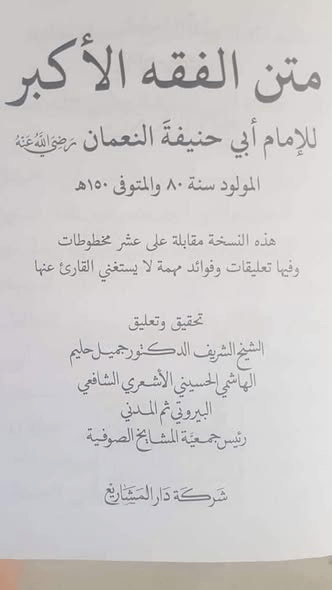 متن الفقه الأكبر
للإمام أبي حنيفةَ النعمان رَضِيَ اللَّهُ عَنْهُ
المولود سنة ٨٠ والمتوفى ١٥٠هـ
هذه النسخة مقابلة على عشر مخطوطات
وفيها تعليقات وفوائد مهمة لا يستغني القارئ عنها
تحقيق وتعليق
الشيخ الشريف الدكتور جميل حليم
الهاشمي الحسيني الأشعري الشافعي
البيروتي ثم المدني
رئيس جمعيّة المشايخ الصوفية
شركة دار المشاريع